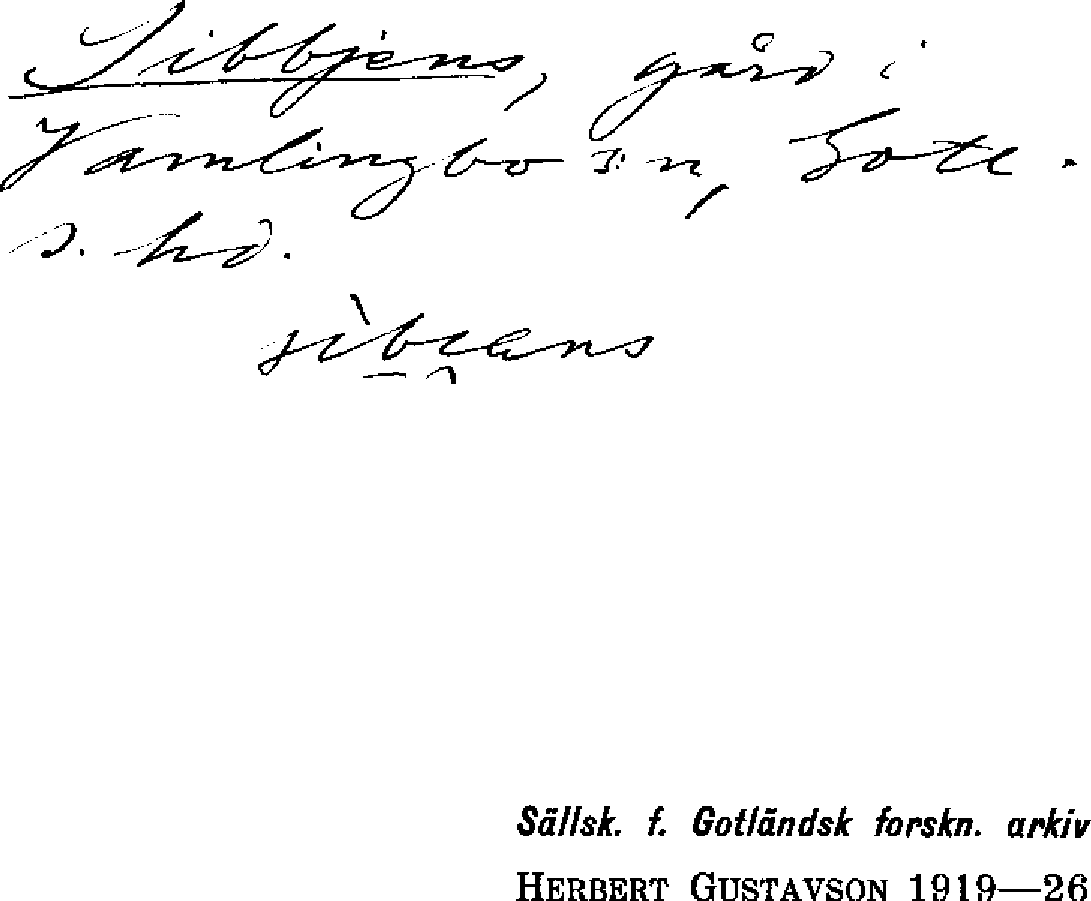 Sibbjens, gård i
Vamlingbo s:n, Gotl.
s. hd.
Sällsk. f. Gotländsk forskn. arkiv
HERBERT GUSTAVSON 1919—26